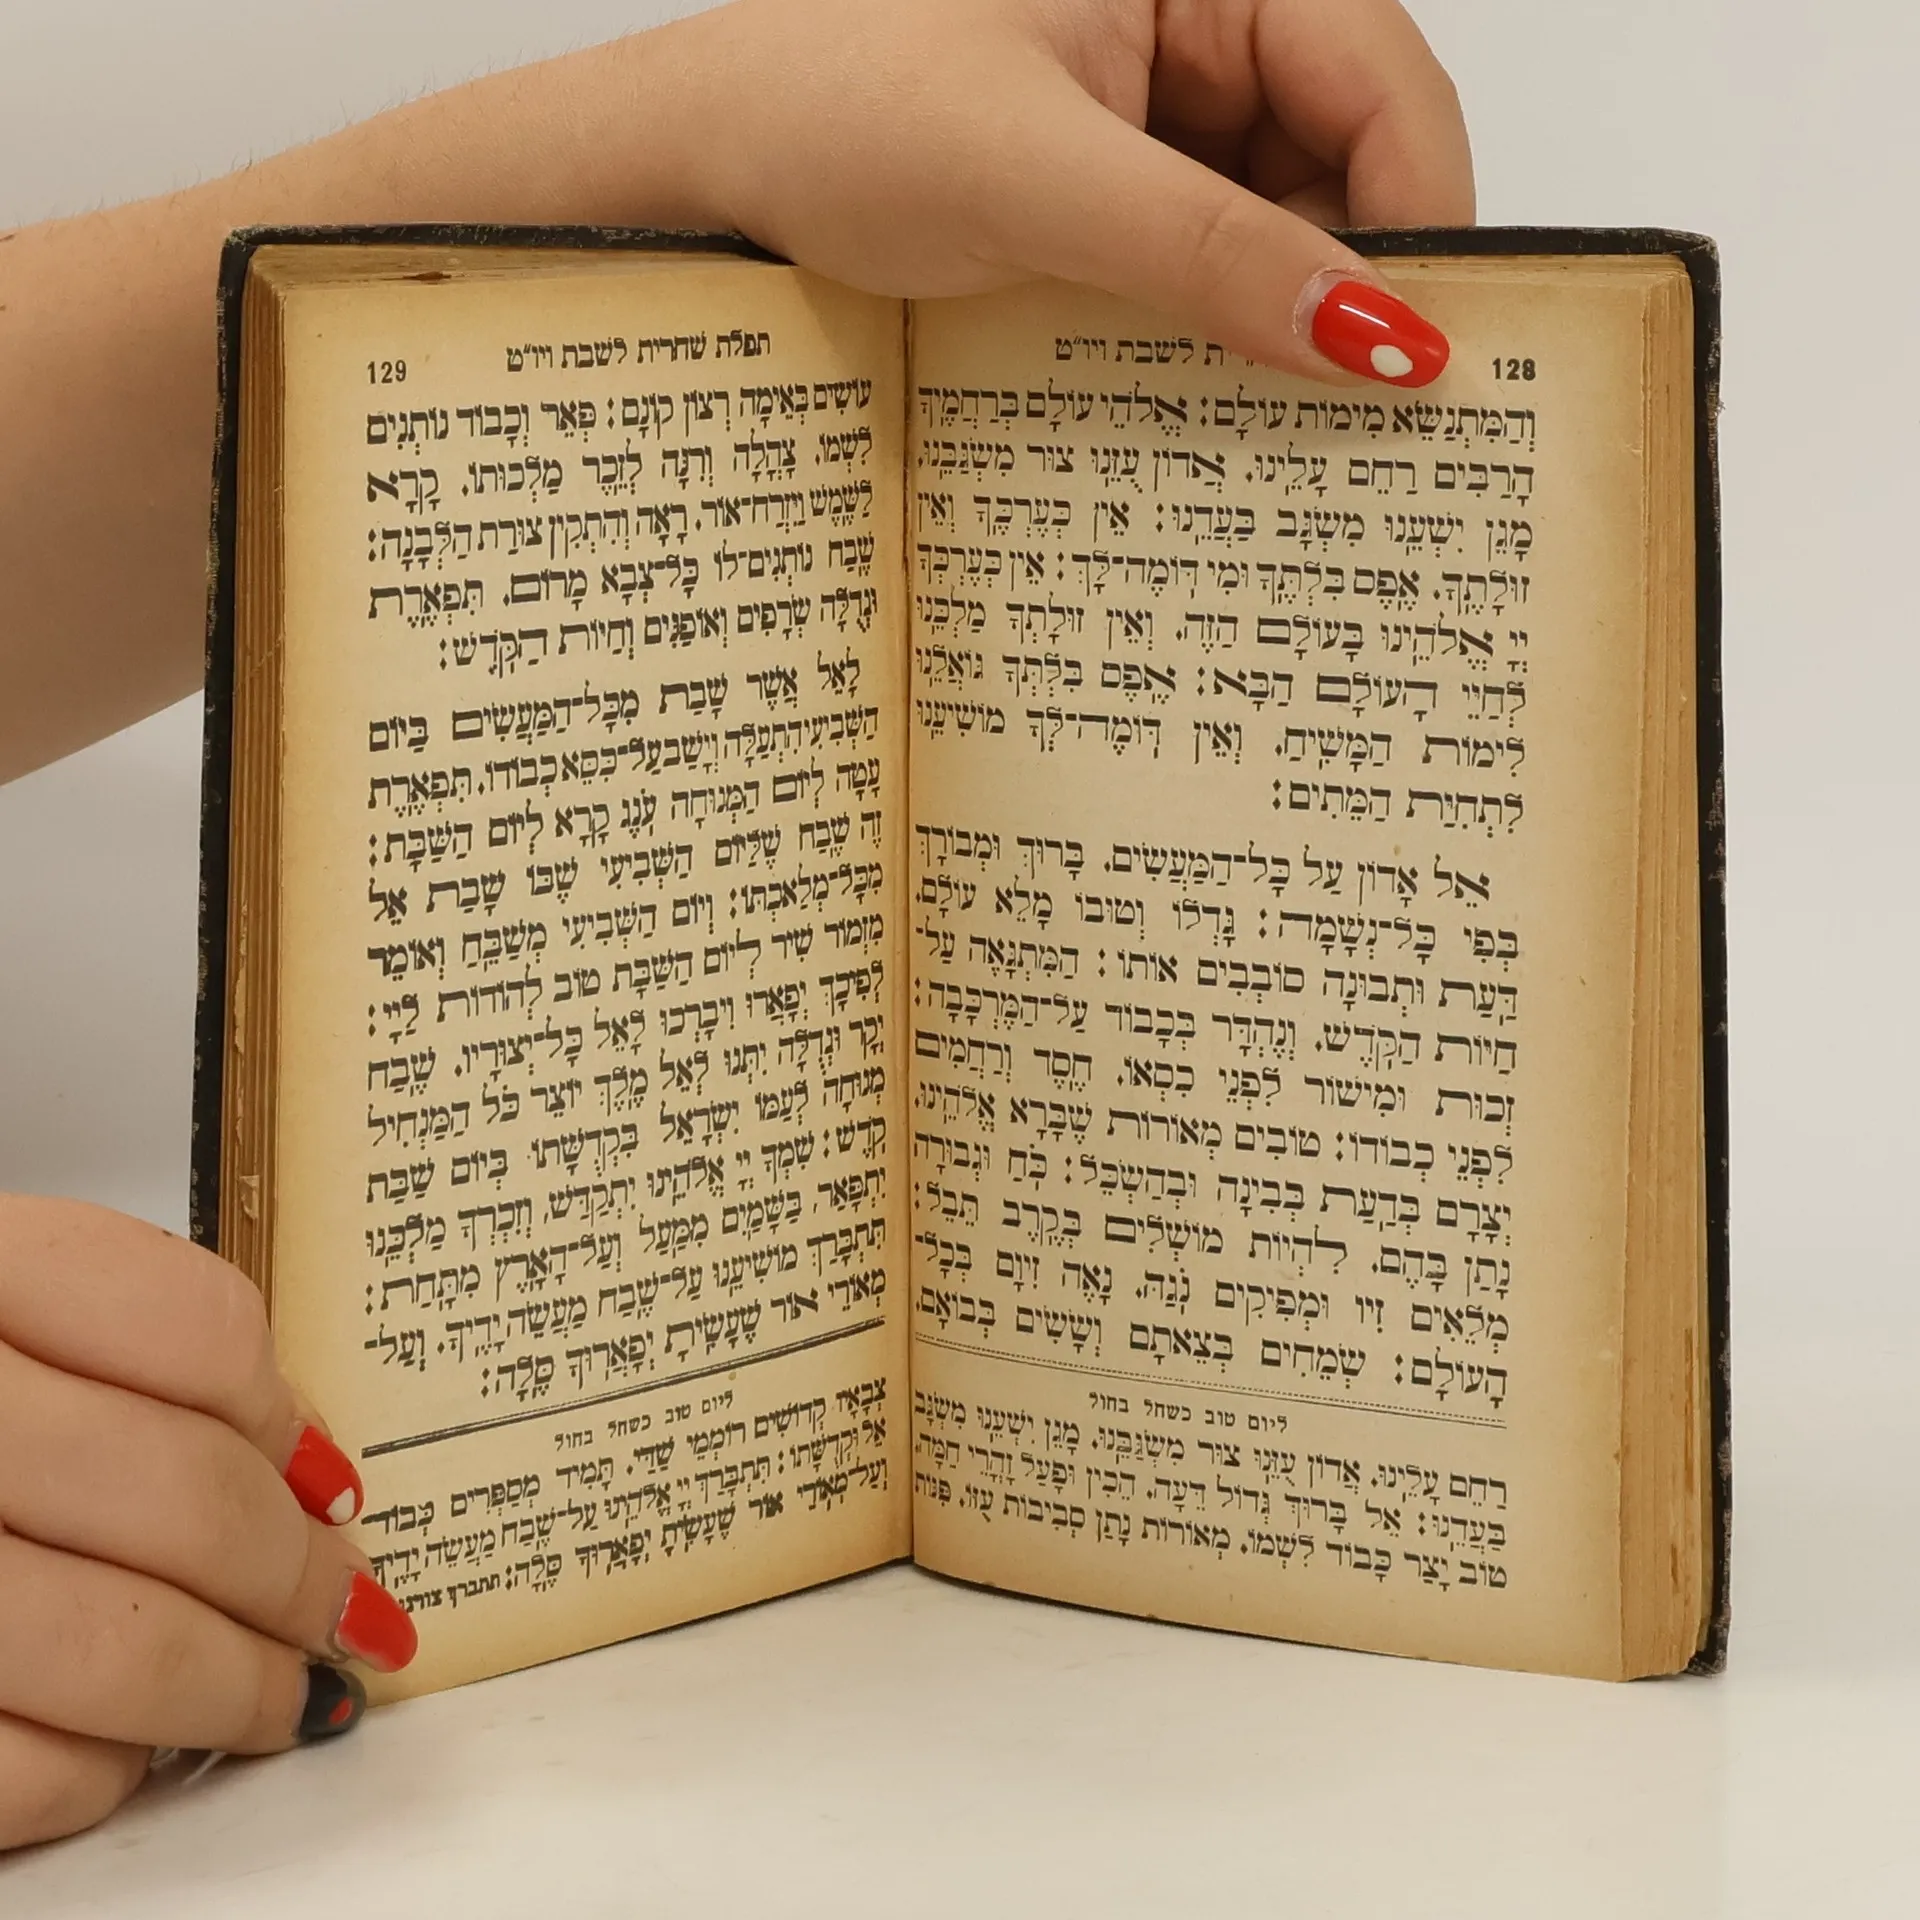 128
לשבת ויו״ט
וְהַמִּתְנַשֵּׂא מִימוֹת עוֹלָם: אֱלֹהֵי עוֹלָם בְּרַחֲמֶיךָ
הָרַבִּים רַחֵם עָלֵינוּ. אֲדוֹן עֻזֵּנוּ צוּר מִשְׂגַּבֵּנוּ.
מָגֵן יִשְׁעֵנוּ מִשְׂגָּב בַּעֲדֵנוּ: אֵין כְּעֶרְכְּךָ וְאֵין
זוּלָתֶךָ. אֶפֶס בִּלְתֶּךָ וּמִי דּוֹמֶה־לָּךְ: אֵין כְּעֶרְכְּךָ
יְיָ אֱלֹהֵינוּ בָּעוֹלָם הַזֶּה. וְאֵין זוּלָתְךָ מַלְכֵּנוּ
לְחַיֵּי הָעוֹלָם הַבָּא: אֶפֶס בִּלְתְּךָ גּוֹאֲלֵנוּ
לִימוֹת הַמָּשִׁיחַ. וְאֵין דּוֹמֶה־לְּךָ מוֹשִׁיעֵנוּ
לִתְחִיַּת הַמֵּתִים:
אֵל אָדוֹן עַל כָּל־הַמַּעֲשִׂים. בָּרוּךְ וּמְבוֹרָךְ
בְּפִי כָּל־נְשָׁמָה: גָּדְלוֹ וְטוּבוֹ מָלֵא עוֹלָם.
דַּעַת וּתְבוּנָה סוֹבְבִים אוֹתוֹ: הַמִּתְגָּאֶה עַל־
חַיּוֹת הַקֹּדֶשׁ. וְנֶהְדָּר בְּכָבוֹד עַל־הַמֶּרְכָּבָה:
זְכוּת וּמִישׁוֹר לִפְנֵי כִסְאוֹ. חֶסֶד וְרַחֲמִים
לִפְנֵי כְבוֹדוֹ: טוֹבִים מְאוֹרוֹת שֶׁבָּרָא אֱלֹהֵינוּ.
יְצָרָם בְּדַעַת בְּבִינָה וּבְהַשְׂכֵּל: כֹּחַ וּגְבוּרָה
נָתַן בָּהֶם. לִהְיוֹת מוֹשְׁלִים בְּקֶרֶב תֵּבֵל:
מְלֵאִים זִיו וּמְפִיקִים נֹגַהּ. נָאֶה זִיוָם בְּכָל־
הָעוֹלָם: שְׂמֵחִים בְּצֵאתָם וְשָׂשִׂים בְּבוֹאָם.
ליום טוב כשחל בחול
רַחֵם עָלֵינוּ. אֲדוֹן עֻזֵּנוּ צוּר מִשְׂגַּבֵּנוּ. מָגֵן יִשְׁעֵנוּ מִשְׂגָּב
בַּעֲדֵנוּ: אֵל בָּרוּךְ גְּדוֹל דֵּעָה. הֵכִין וּפָעַל זָהֳרֵי חַמָּה.
טוֹב יָצַר כָּבוֹד לִשְׁמוֹ. מְאוֹרוֹת נָתַן סְבִיבוֹת עֻזּוֹ. פִּנּוֹת
129
תפלת שחרית לשבת ויו״ט
עוֹשִׂים בְּאֵימָה רְצוֹן קוֹנָם: פְּאֵר וְכָבוֹד נוֹתְנִים
לִשְׁמוֹ. צָהֳלָה וְרִנָּה לְזֵכֶר מַלְכוּתוֹ. קָרָא
לַשֶּׁמֶשׁ וַיִּזְרַח־אוֹר. רָאָה וְהִתְקִין צוּרַת הַלְּבָנָה:
שֶׁבַח נוֹתְנִים־לוֹ כָּל־צְבָא מָרוֹם. תִּפְאֶרֶת
וּגְדֻלָּה שְׂרָפִים וְאוֹפַנִּים וְחַיּוֹת הַקֹּדֶשׁ:
לָאֵל אֲשֶׁר שָׁבַת מִכָּל־הַמַּעֲשִׂים בַּיּוֹם
הַשְּׁבִיעִי הִתְעַלָּה וְיָשַׁב עַל־כִּסֵּא כְבוֹדוֹ. תִּפְאֶרֶת
עָטָה לְיוֹם הַמְּנוּחָה עֹנֶג קָרָא לְיוֹם הַשַּׁבָּת:
זֶה שֶׁבַח שֶׁלַּיּוֹם הַשְּׁבִיעִי שֶׁבּוֹ שָׁבַת אֵל
מִכָּל־מְלַאכְתּוֹ: וְיוֹם הַשְּׁבִיעִי מְשַׁבֵּחַ וְאוֹמֵר
מִזְמוֹר שִׁיר לְיוֹם הַשַּׁבָּת טוֹב לְהוֹדוֹת לַיְיָ:
לְפִיכָךְ יְפָאֲרוּ וִיבָרְכוּ לָאֵל כָּל־יְצוּרָיו. שֶׁבַח
יְקָר וּגְדֻלָּה יִתְּנוּ לְאֵל מֶלֶךְ יוֹצֵר כֹּל הַמַּנְחִיל
מְנוּחָה לְעַמּוֹ יִשְׂרָאֵל בִּקְדֻשָּׁתוֹ בְּיוֹם שַׁבַּת
קֹדֶשׁ: שִׁמְךָ יְיָ אֱלֹהֵינוּ יִתְקַדַּשׁ, וְזִכְרְךָ מַלְכֵּנוּ
יִתְפָּאַר, בַּשָּׁמַיִם מִמַּעַל וְעַל־הָאָרֶץ מִתָּחַת:
תִּתְבָּרַךְ מוֹשִׁיעֵנוּ עַל־שֶׁבַח מַעֲשֵׂה יָדֶיךָ. וְעַל־
מְאוֹרֵי אוֹר שֶׁעָשִׂיתָ יְפָאֲרוּךָ סֶּלָה:
ליום טוב כשחל בחול
צְבָאָיו קְדוֹשִׁים רוֹמְמֵי שַׁדַּי. תָּמִיד מְסַפְּרִים כְּבוֹד
אֵל וּקְדֻשָּׁתוֹ: תִּתְבָּרַךְ יְיָ אֱלֹהֵינוּ עַל־שֶׁבַח מַעֲשֵׂה יָדֶיךָ
וְעַל־מְאוֹרֵי אוֹר שֶׁעָשִׂיתָ יְפָאֲרוּךָ סֶּלָה: תתברך צורנו